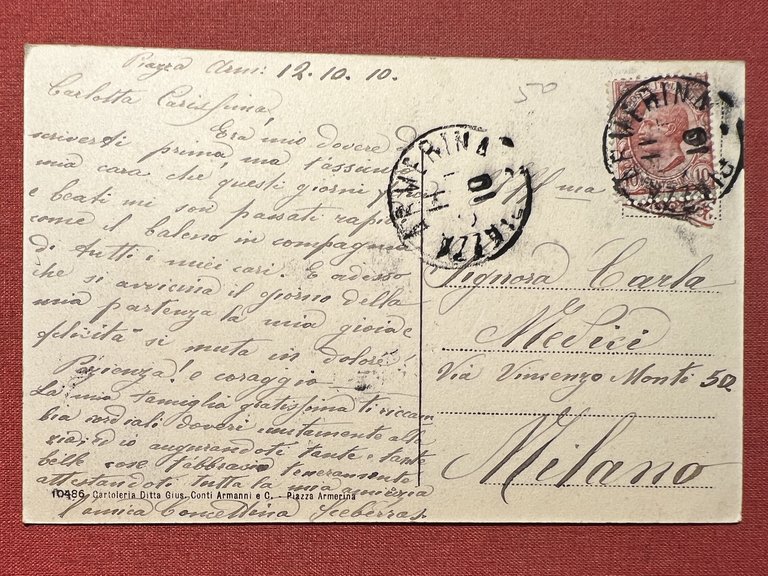 Piazza Arm: 12.10.10.
50
Carlotta Carissima,
Era mio dovere di
scriverti prima, ma t'assicuro
mia cara che questi giorni
e beati mi son passati rapidi
come il baleno in compagnia
di tutti i miei cari. E adesso
che si avvicina il giorno della
mia partenza la mia gioia e
felicità si muta in dolore!
Pazienza! e coraggio
La mia famiglia gratissima ti ricam
bia cordiali doveri unitamente alle
ed io augurandoti tante e tante
belle cose t'abbraccio teneramente
attestandoti tutta la mia amicizia
l'amica Concettina
10486 Cartoleria Ditta Gius. Conti Armanni e C. - Piazza Armerina
ARMERINA
PIAZZA
10
ARMERINA
10
Ill/ma
Signora Carla
Medici
Via Vincenzo Monti 50
Milano